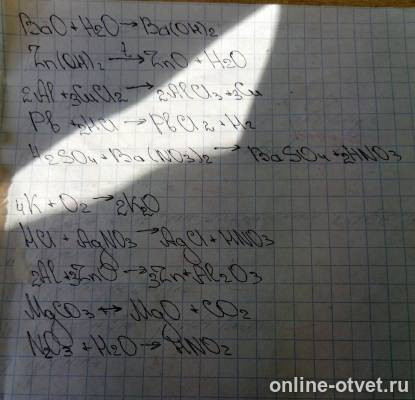 BaO + H2O → Ba(OH)2
Zn(OH)2 →t ZnO + H2O
2Al + 3CuCl2 → 2AlCl3 + 3Cu
Pb + 2HCl → PbCl2 + H2
H2SO4 + Ba(NO3)2 → BaSO4 + 2HNO3
4K + O2 → 2K2O
HCl + AgNO3 → AgCl + HNO3
2Al + 3ZnO → 3Zn + Al2O3
MgCO3 ↔ MgO + CO2
N2O3 + H2O → HNO2
online-otvet.ru